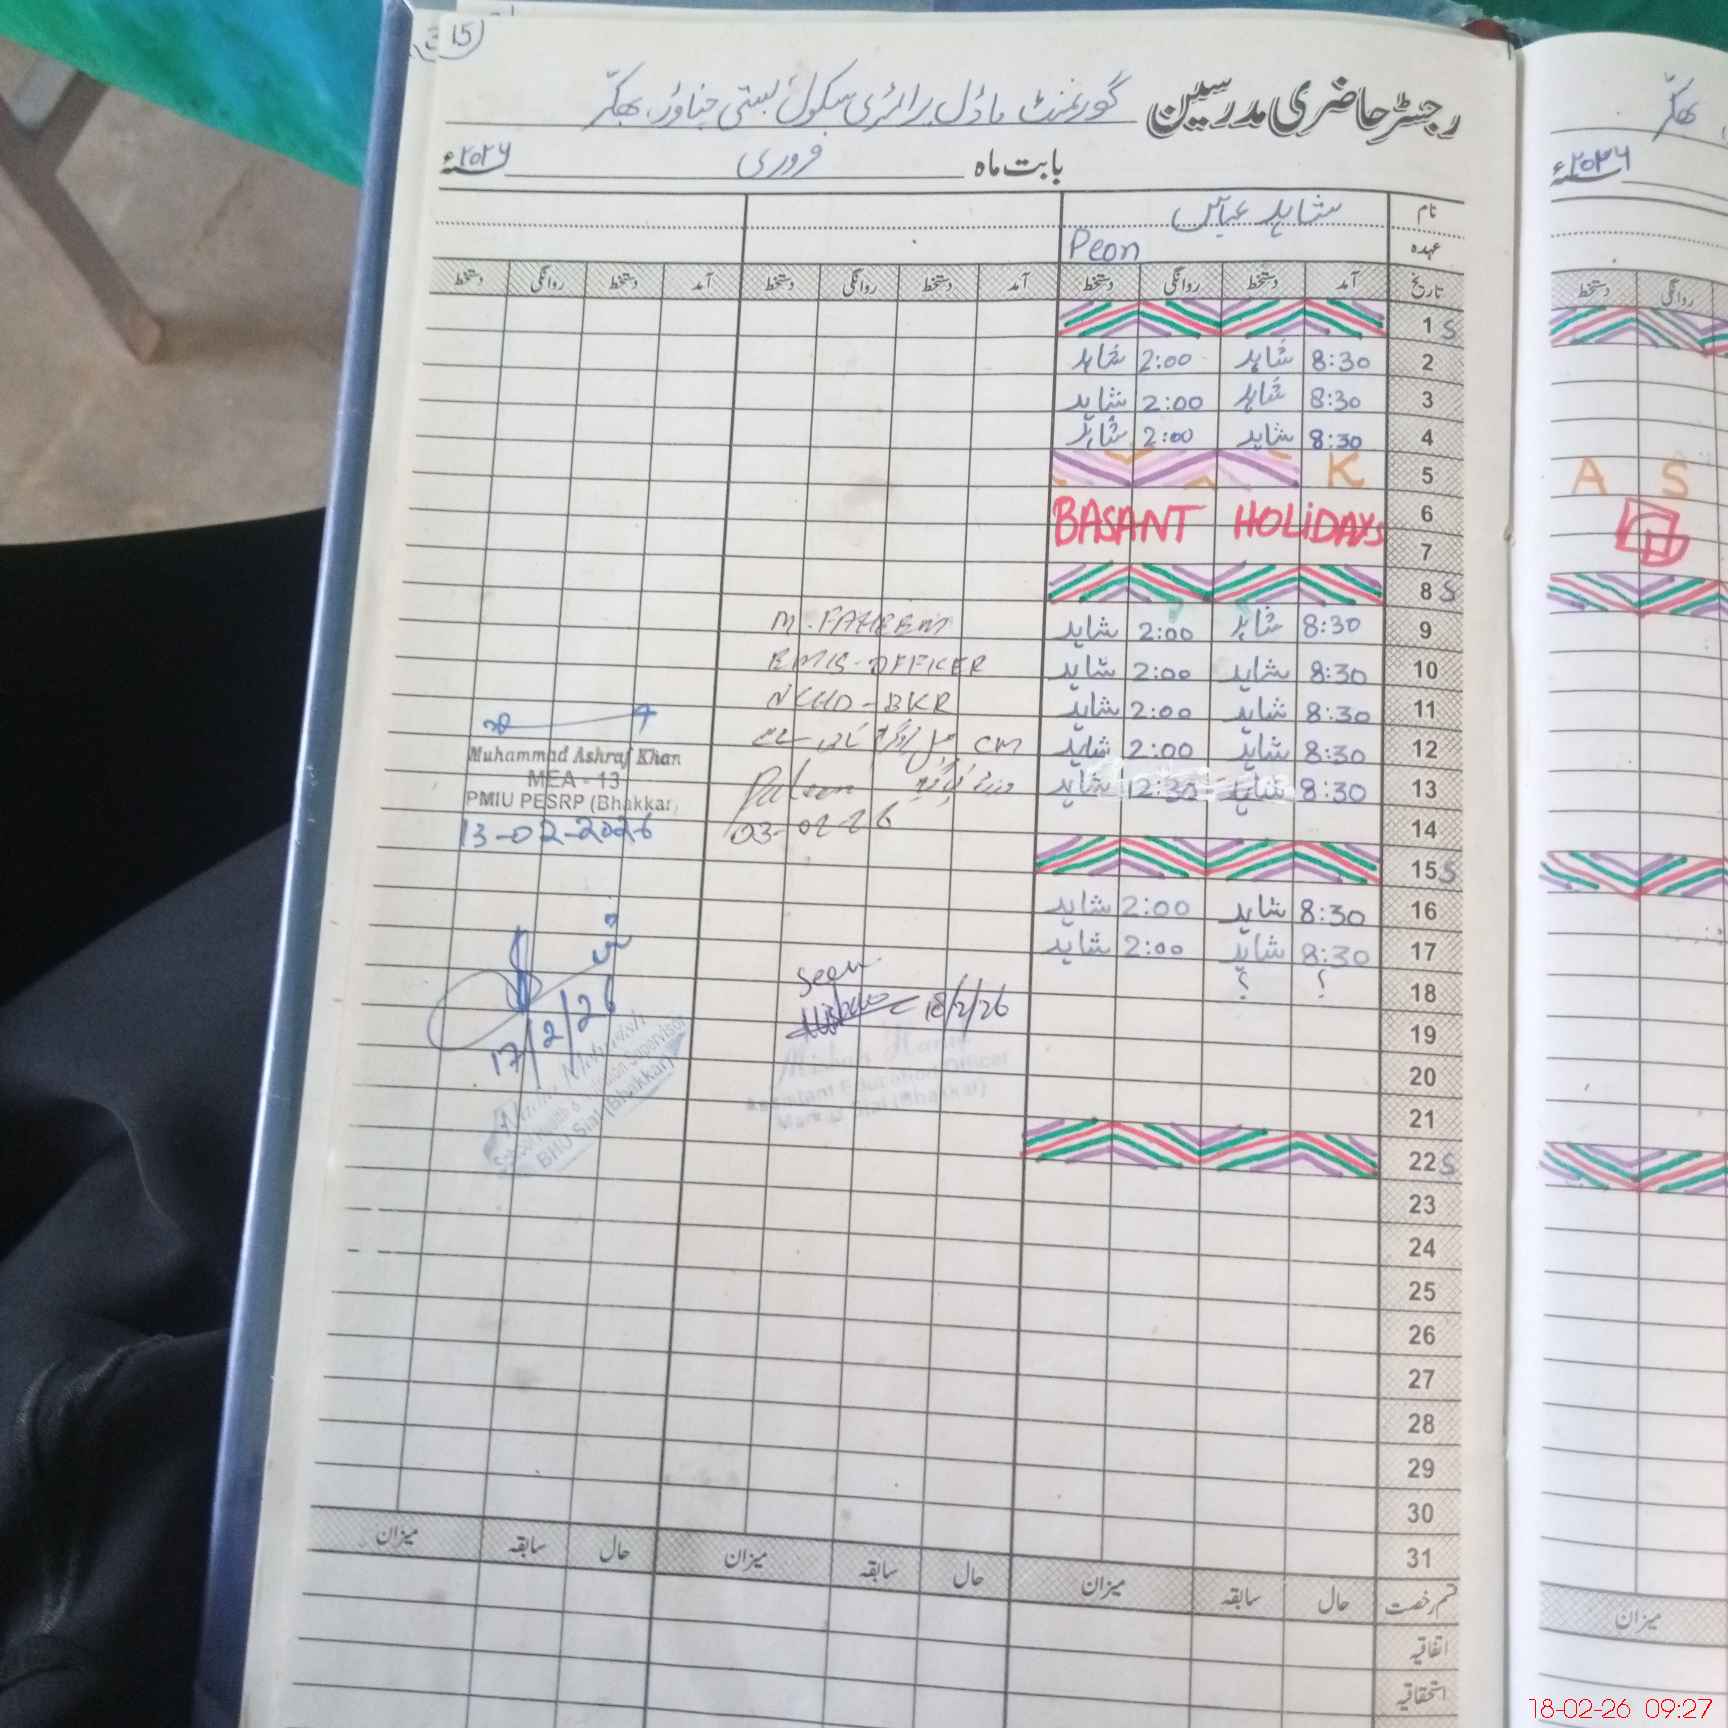 15
رجسٹر حاضری مدرسین گورنمنٹ ماڈل پرائمری سکول بستی جناور، بھکر
بابت ماہ فروری ۲۰۲۶ء
نام شاہد عباس
عہدہ Peon
تاریخ آمد دستخط روانگی دستخط آمد دستخط روانگی دستخط آمد دستخط روانگی دستخط
1 S
2 8:30 شاہد 2:00 شاہد
3 8:30 شاہد 2:00 شاہد
4 8:30 شاہد 2:00 شاہد
5 K
6 BASANT HOLIDAYS
7
8 S
9 8:30 شاہد 2:00 شاہد
10 8:30 شاہد 2:00 شاہد
11 8:30 شاہد 2:00 شاہد
12 8:30 شاہد 2:00 شاہد
13 8:30 شاہد 12:30 شاہد
14
15 S
16 8:30 شاہد 2:00 شاہد
17 8:30 شاہد 2:00 شاہد
18 ؟ ؟
19
20
21
22 S
23
24
25
26
27
28
29
30
31
M. FAHEEM
EMIS-OFFICER
CM
03-02-26
Muhammad Ashraf Khan
MEA - 13
PMIU PESRP (Bhakkar)
13-02-2026
17/2/26
School Health & Nutrition Supervisor
BHU Sial (Bhakkar)
Seen
18/2/26
Assistant Education Officer
(Bhakkar)
قسم رخصت حال سابقہ میزان حال سابقہ میزان حال سابقہ میزان
اتفاقیہ
استحقاقیہ
بھکر
۲۰۲۶ء
دستخط روانگی
A S
میزان
18-02-26 09:27